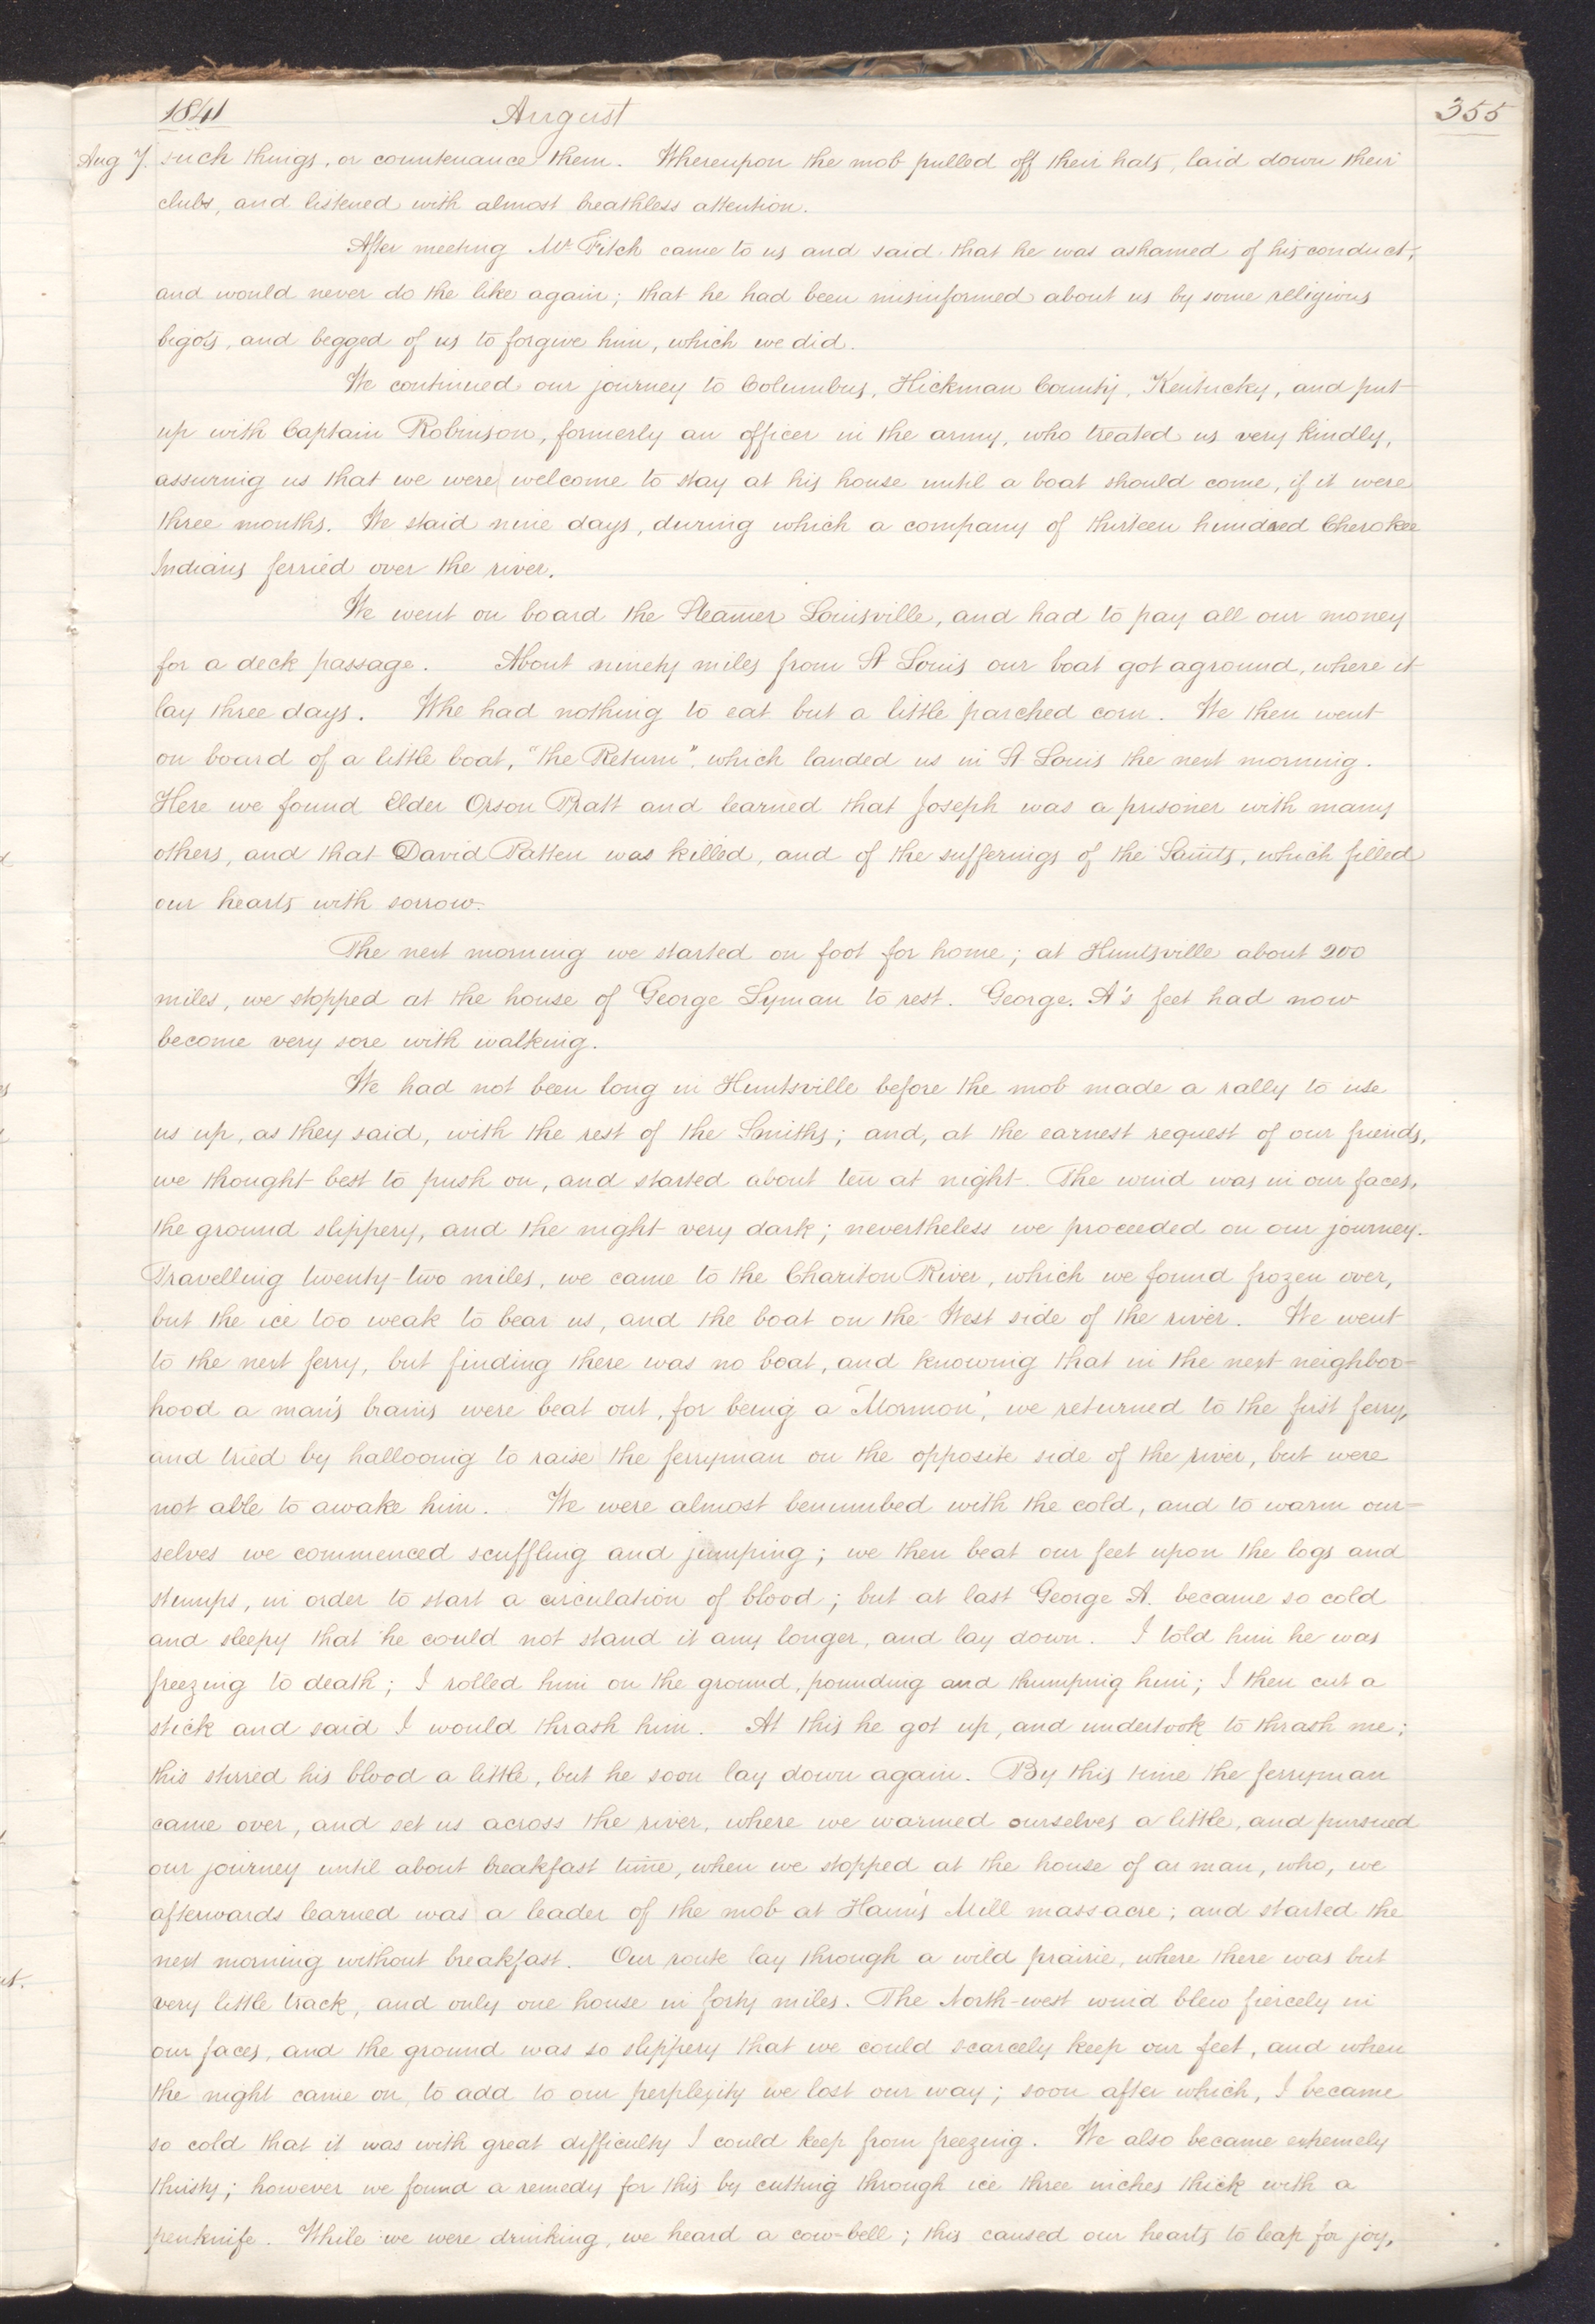 1841 August 355
Aug 7. such things, or countenance them. Whereupon the mob pulled off their hats, laid down their
clubs, and listened with almost breathless attention.
After meeting Mr Fitch came to us and said that he was ashamed of his conduct,
and would never do the like again; that he had been misinformed about us by some religious
bigots, and begged of us to forgive him, which we did.
We continued our journey to Columbus, Hickman County, Kentucky, and put
up with Captain Robinson, formerly an officer in the army, who treated us very kindly,
assuring us that we were welcome to stay at his house until a boat should come, if it were
three months. We staid nine days, during which a company of thirteen hundred Cherokee
Indians ferried over the river.
We went on board the Steamer Louisville, and had to pay all our money
for a deck passage. About ninety miles from St Louis our boat got aground, where it
lay three days. Whe had nothing to eat but a little parched corn. We then went
on board of a little boat, "the Return", which landed us in St Louis the next morning.
Here we found Elder Orson Pratt and learned that Joseph was a prisoner with many
others, and that David Patten was killed, and of the sufferings of the Saints, which filled
our hearts with sorrow.
The next morning we started on foot for home; at Huntsville about 200
miles, we stopped at the house of George Lyman to rest. George. A's feet had now
become very sore with walking.
We had not been long in Huntsville before the mob made a rally to use
us up, as they said, with the rest of the Smiths; and, at the earnest request of our friends,
we thought best to push on, and started about ten at night. The wind was in our faces,
the ground slippery, and the night very dark; nevertheless we proceeded on our journey.
Travelling twenty-two miles, we came to the Chariton River, which we found frozen over,
but the ice too weak to bear us, and the boat on the West side of the river. We went
to the next ferry, but finding there was no boat, and knowing that in the next neighbor-
hood a man's brains were beat out, for being a 'Mormon', we returned to the first ferry,
and tried by hallooing to raise the ferryman on the opposite side of the river, but were
not able to awake him. We were almost benumbed with the cold, and to warm our-
selves we commenced scuffling and jumping; we then beat our feet upon the logs and
stumps, in order to start a circulation of blood; but at last George A. became so cold
and sleepy that he could not stand it any longer, and lay down. I told him he was
freezing to death; I rolled him on the ground, pounding and thumping him; I then cut a
stick and said I would thrash him. At this he got up, and undertook to thrash me;
this stirred his blood a little, but he soon lay down again. By this time the ferryman
came over, and set us across the river, where we warmed ourselves a little, and pursued
our journey until about breakfast time, when we stopped at the house of a man, who, we
afterwards learned was a leader of the mob at Haun's Mill massacre; and started the
next morning without breakfast. Our route lay through a wild prairie, where there was but
very little track, and only one house in forty miles. The North-west wind blew fiercely in
our faces, and the ground was so slippery that we could scarcely keep our feet, and when
the night came on, to add to our perplexity we lost our way; soon after which, I became
so cold that it was with great difficulty I could keep from freezing. We also became extremely
thirsty; however we found a remedy for this by cutting through ice three inches thick with a
penknife. While we were drinking, we heard a cow-bell; this caused our hearts to leap for joy,